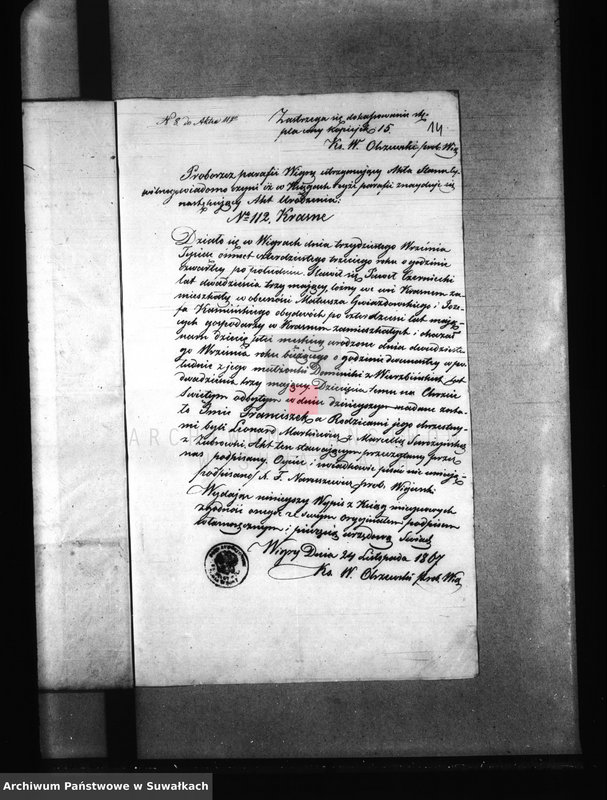 N 8. do Aktu 118
Zastrzega się do skasowania stę-
pla ceny kopiejek 15.
14.
Ks. W. Olszewski prob. Wig
Proboszcz parafii Wigry utrzymujący Akta Stanu Cy-
wilnego wiadomo czyni iż w Księgach tejże parafii znajduje się
następujący Akt Urodzenia:
No 112. Krasne
Działo się w Wigrach dnia trzydziestego Września
Tysiąc ośmset czterdziestego trzeciego roku o godzinie
czwartej po południu. Stawił się Paweł Czerniecki
lat dwadzieścia trzy mający we wsi Krasnem za-
mieszkały w obecności Mateusza Gwiazdowskiego i Józe-
fa Kamińskiego obydwóch po czterdzieści lat mają-
cych gospodarzy w Krasnem zamieszkałych i okazał
nam dziecię płci męzkiej urodzone dnia dwudzieste-
go Września roku bieżącego o godzinie dwunastej w po-
łudnie z jego małżonki Dominiki z Wierzbińskich lat
dwadzieścia trzy mającej Dziecięciu temu na Chrzcie
Świętym odbytym w dniu dzisiejszym nadane zosta-
ło Imie Franciszek, a Rodzicami jego chrzestne-
mi byli Leonard Markiewicz z Marcellą
z Żubrowki. Akt ten stawającym przeczytany przez
nas podpisany. Ojciec i świadkowie pisać nie umieją-
podpisano X. T. prob. Wigierski
Wydając niniejszy Wypis z Ksiąg miejscowych
zgodność onego z swym oryginałem podpisem
własnoręcznym i pieczęcią urzędową
Wigry Dnia 24 Listopada 1867
Ks. W. Olszewski prob. Wig
ARC
Archiwum Państwowe w Suwałkach